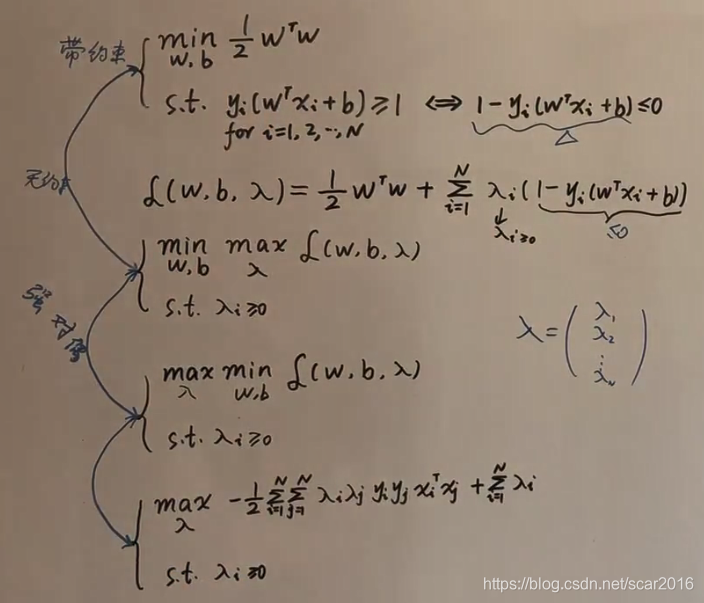 带约束
min 1/2 wᵀw
w, b
s.t. yᵢ(wᵀxᵢ+b)≥1 ⟺ 1-yᵢ(wᵀxᵢ+b)≤0
for i=1, 2, ⋯, N
△
无约束
ℒ(w, b, λ) = 1/2 wᵀw + ∑ᵢ₌₁ᴺ λᵢ(1-yᵢ(wᵀxᵢ+b))
↓
λᵢ≥0
≤0
min max ℒ(w, b, λ)
w, b λ
s.t. λᵢ≥0
强对偶
λ = ( λ₁
λ₂
⋮
λ_N )
max min ℒ(w, b, λ)
λ w, b
s.t. λᵢ≥0
max -1/2 ∑ᵢ₌₁ᴺ ∑ⱼ₌₁ᴺ λᵢλⱼ yᵢyⱼ xᵢᵀxⱼ + ∑ᵢ₌₁ᴺ λᵢ
λ
s.t. λᵢ≥0
https://blog.csdn.net/scar2016